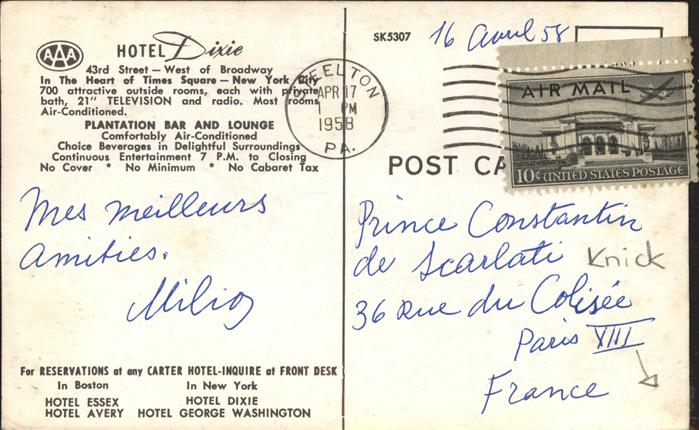 AAA
HOTEL Dixie
43rd Street — West of Broadway
In The Heart of Times Square — New York City
700 attractive outside rooms, each with private
bath, 21" TELEVISION and radio. Most rooms
Air-Conditioned.
PLANTATION BAR AND LOUNGE
Comfortably Air-Conditioned
Choice Beverages in Delightful Surroundings
Continuous Entertainment 7 P.M. to Closing
No Cover * No Minimum * No Cabaret Tax
Mes meilleurs
amities.
For RESERVATIONS at any CARTER HOTEL-INQUIRE at FRONT DESK
In Boston In New York
HOTEL ESSEX HOTEL DIXIE
HOTEL AVERY HOTEL GEORGE WASHINGTON
SK5307
16 Avril 58
STEELTON
APR 17
1 PM
1958
PA.
AIR MAIL
10¢ UNITED STATES POSTAGE
POST CA
Prince Constantin
de Scarlati Knick
36 Rue du Colisée
Paris VIII
France